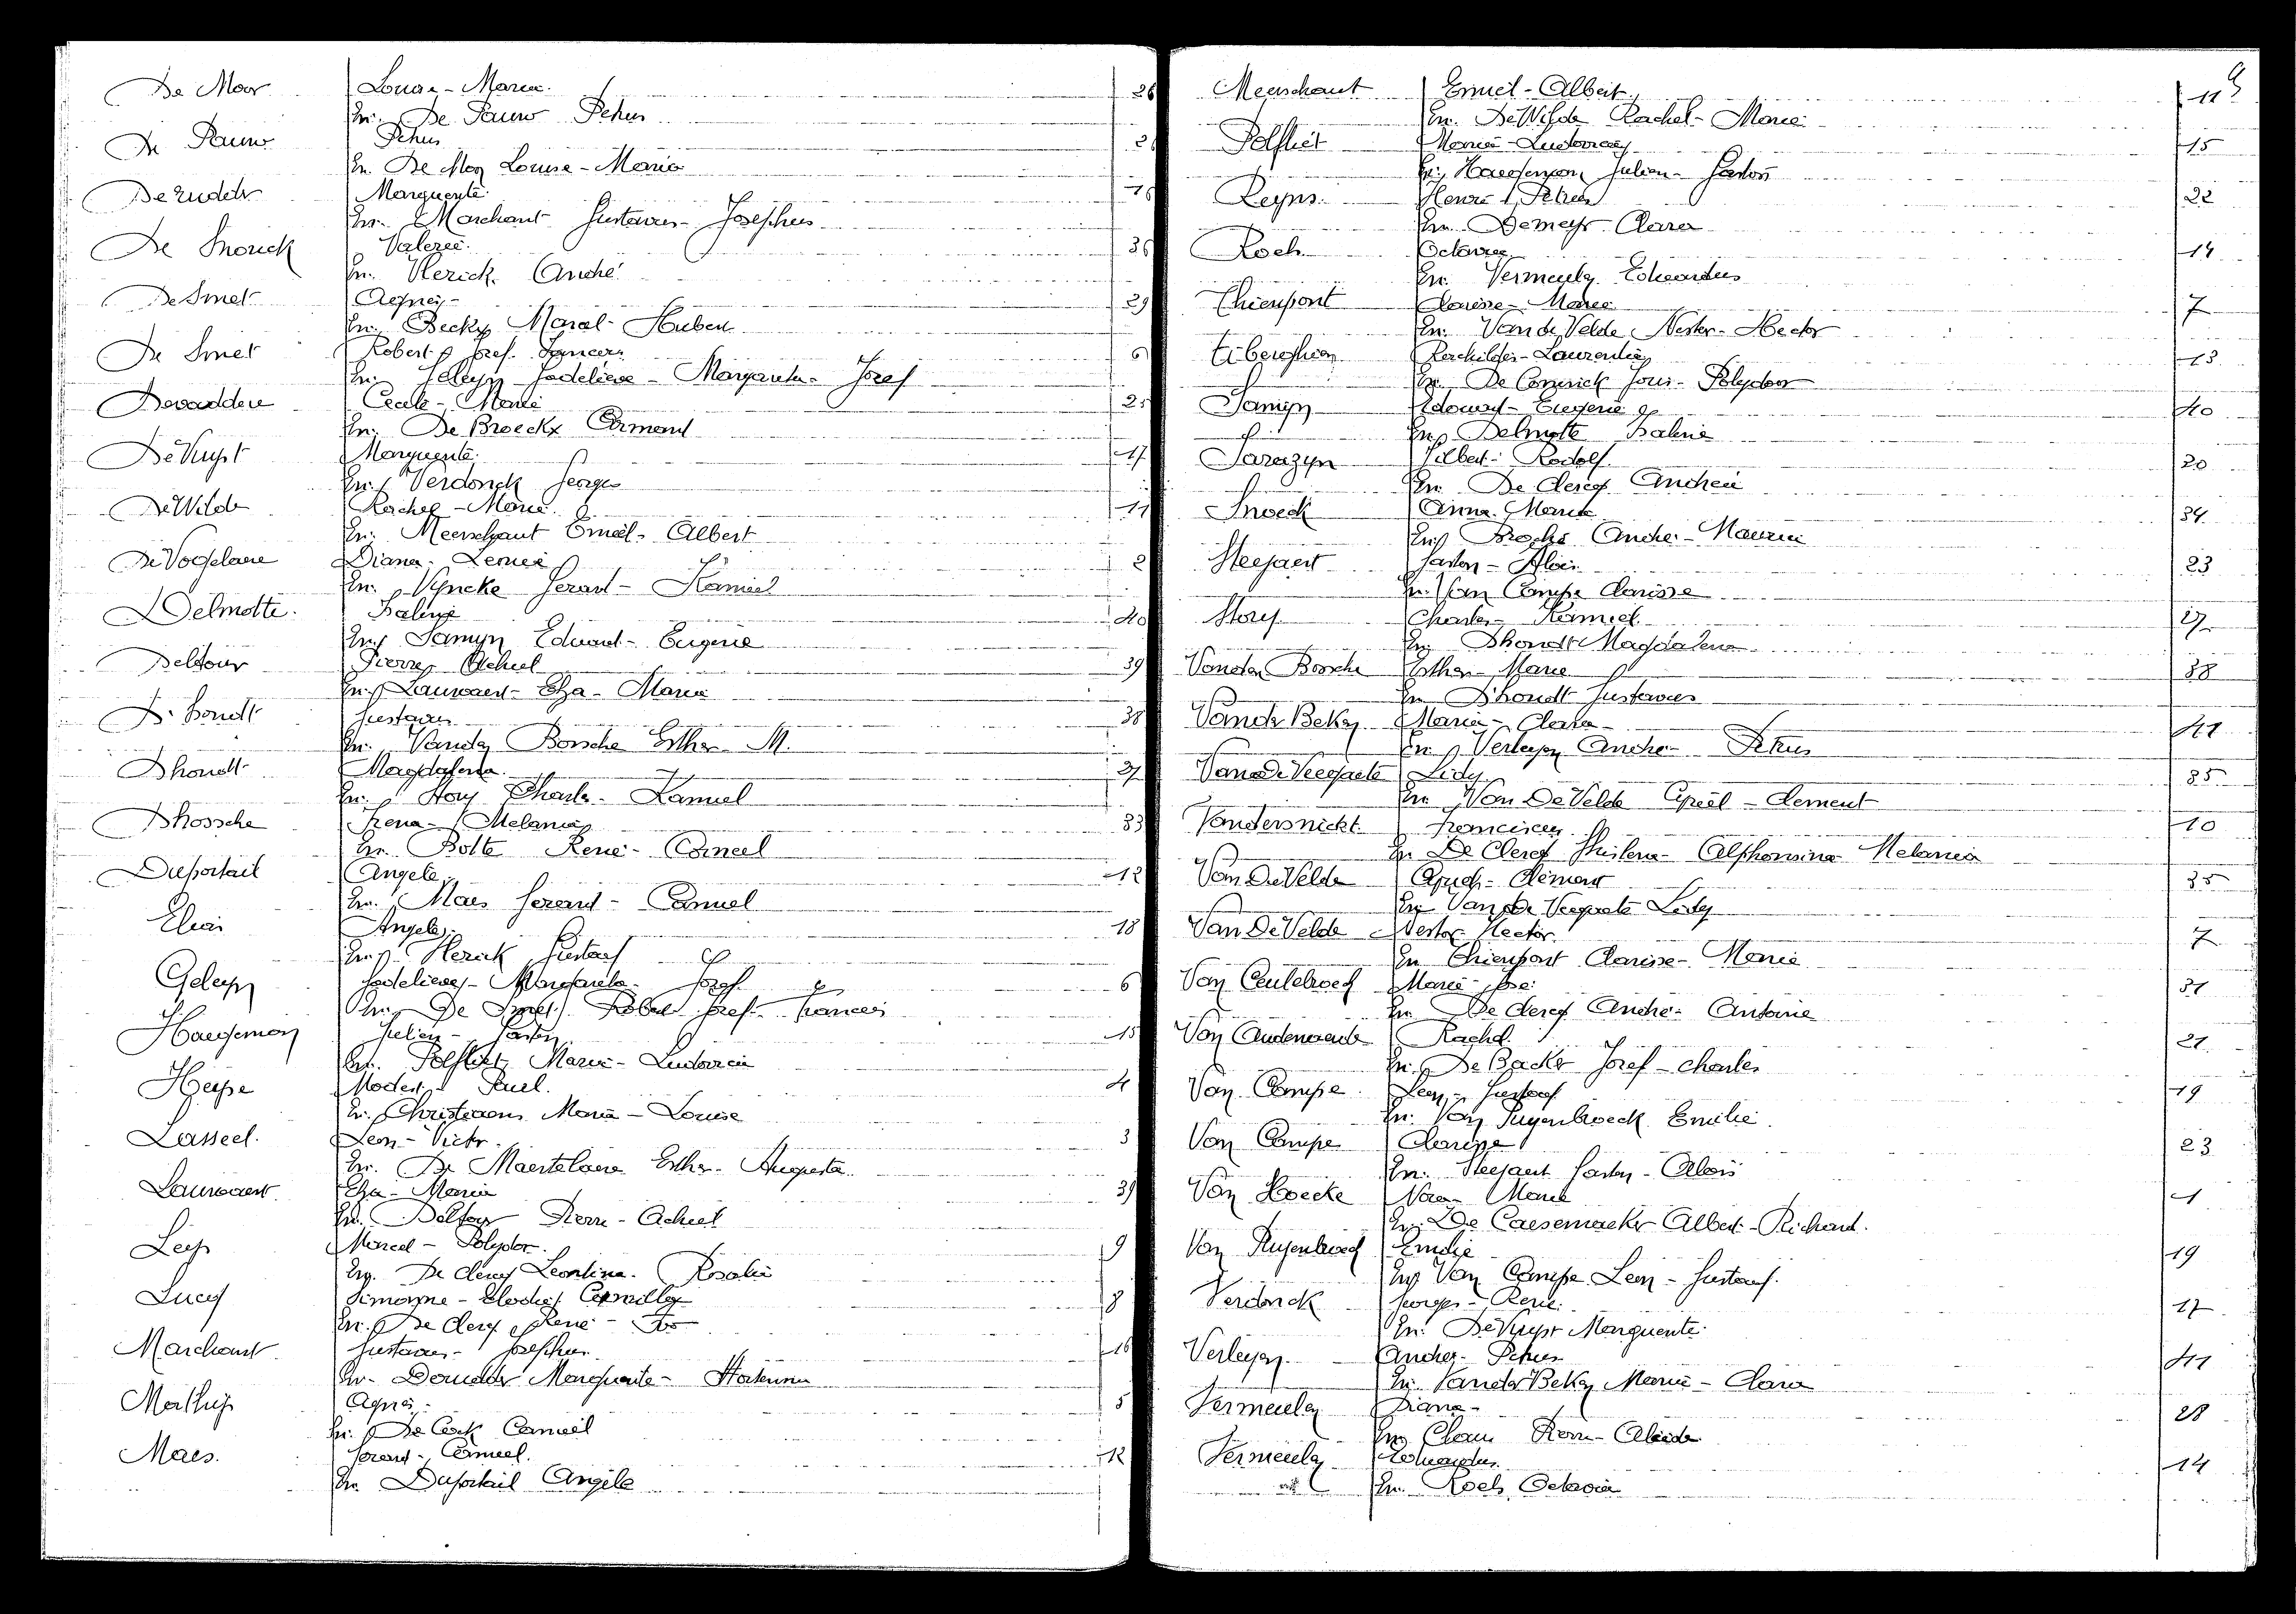 De Moor Louisa - Maria. 26
En. De Pauw Petrus
De Pauw Petrus 26
En. De Moor Louisa - Maria
De Rudder Marguerite. 16
En. Marchant Gustavus - Josephus
De Snoeck Valerie. 36
En. Herick André
De Smet Agnes - 29
En. Becky Marcel - Hubert
De Smet Robert Josef. Francies 6
En. Geleyn Godelieve - Margareta - Jozef
Devaddere Cecile - Marie 25
En. De Broeckx Armand
De Vuyst Marguerite. 17
En. Verdonck Georges
De Wilde Rachel - Marie. 11
En. Meerschaut Emiel - Albert
De Vogelaere Diana - Leonie 2
En. Vyncke Gerard - Kamiel
Delmotte. Paline 40
En. Samyn Eduard - Eugenie
Delfour Pierre Achiel 39
En. Lauwaert - Elza - Maria
D'hondt Gustavus 38
En. Vanden Bossche Esther M.
Dhondt Magdalena. 27
En. Story Charles - Kamiel
Dhossche Irena - Melania 33
En. Bolte René - Camiel
Duportail Angele. 12
En. Maes Gerard - Camiel
Angele 18
En. Herick Gustaaf
Geleyn Godelieve - Margareta - Jozef 6
En. De Smet Robert Josef - Francies
Haegeman Julien - Gaston 15
En. Polfliet Maria - Ludovica
Heyse Modest Paul. 4
En. Christiaens Maria - Louise
Lasseel. Leon - Victor. 3
En. De Maertelaere Esther - Augusta.
Lauwaert Elza - Maria 39
En. Delfour Pierre - Achiel
Leys Marcel - Polydor. 9
En. De Clercq Leontina - Rosalie
Lucq Simonne - Elodie Camilla 8
En. De Clercq René -
Marchant Gustavus - Josephus. 16
En. Derudder Marguerite -
Mathys Agnes - 5
En. De Cock Camiel
Maes. Gerard - Camiel. 12
En. Duportail Angèle
Meerschaut Emiel - Albert. 11
En. De Wilde Rachel - Marie
Polfliet Maria - Ludovica 15
En. Haegeman Julien - Gaston
Reyns. Henri Petrus 22
En. Demeyer Clara
Roels Octavia 14
En. Vermeulen Eduardus
Thienpont Clarisse - Marie 7
En. Van de Velde Nestor - Hector
Tiberghien Rachildis - Laurentia 13
En. De Coninck Joris - Polydoor
Samyn Edouard - Eugenie 40
En. Delmotte Paline
Sarazyn Gilbert - Rodolf 20
En. De Clercq Andrea
Snoeck Anna - Maria 34
En. André - Maurice
Steejaert Gaston - Alois 23
En. Van Campe Clarisse
Story Charles - Kamiel. 27
En. Dhondt Magdalena
Vanden Bossche Esther - Marie 38
En. D'hondt Gustavus
Vander Beken Maria - Clara - 41
En. Verleyen André - Petrus
Van De Veegaete Lidy 35
En. Van De Velde Cyriel - Clement
Vandersnickt Franciscus 10
En. De Clercq Ghislena - Alphonsina Melania
Van De Velde Cyriel - Clement 35
En. Van De Veegaete Lidy
Van De Velde Nestor Hector. 7
En. Thienpont Clarisse - Marie
Van Ceulebroeck Maria José 31
En. De Clercq André - Antoine
Van Audenaerde Rachel. 21
En. De Backer Josef - Charles
Van Campe Leon - Gustaaf 19
En. Van Puyenbroeck Emilie.
Van Campe Clarisse 23
En. Steejaert Gaston - Alois
Van Hoecke Nora - Maria 1
En. De Caesemaeker Albert - Richard.
Van Puyenbroeck Emilie 19
En. Van Campe Leon - Gustaaf.
Verdonck Georges - René. 17
En. De Vuyst Marguerite.
Verleyen André - Petrus 41
En. Vander Beken Maria - Clara
Vermeulen Diana - 28
En. Claus Pierre -
Vermeulen Eduardus 14
En. Roels Octavia